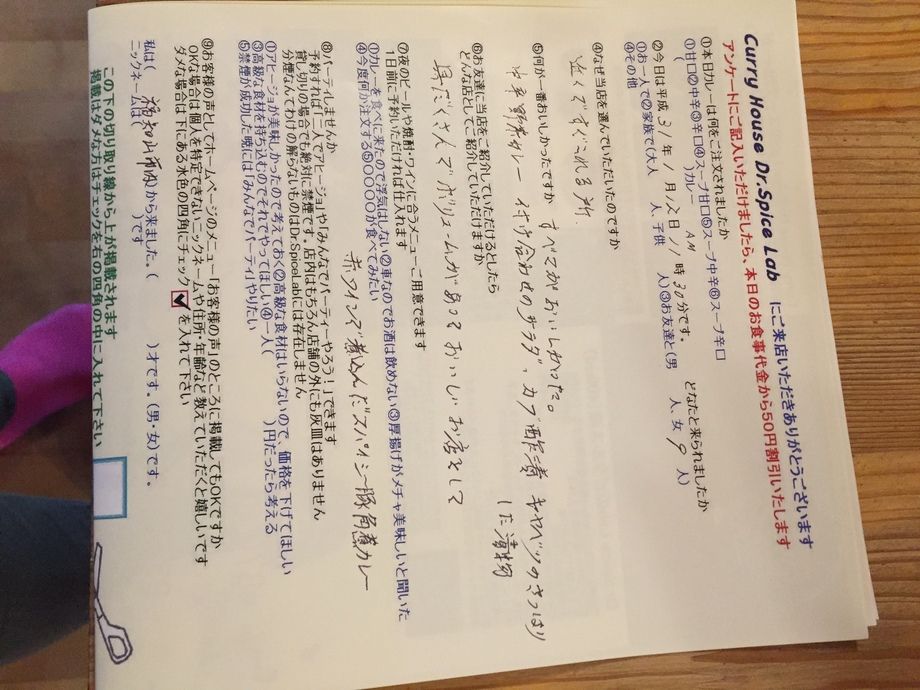 Curry House Dr.Spice Lab にご来店いただきありがとうございます
アンケートにご記入いただけましたら、本日のお食事代金から50円割引いたします
①本日カレーは何をご注文されましたか
①甘口②中辛③辛口④スープ甘口⑤スープ中辛⑥スープ辛口
( )カレー AM
②今日は平成31年1月12日11時30分です。 どなたと来られましたか
①お一人で②家族で(大人 人、子供 人)③お友達と(男 人、女9人)
④その他
④なぜ当店を選んでいただいたのですか
近くですぐこれる所
⑤何が一番おいしかったですか すべてがおいしかった。
中辛野菜カレー 付け合わせのサラダ、カブ キャベツのさっぱり
した漬物
⑥お友達に当店をご紹介していただけるとしたら
どんな店としてご紹介していただけますか
具だくさんでボリュームがあっておいしいお店として
⑦夜のビールや焼酎・ワインに合うメニューご用意できます
1日前に予約いただければ仕入れます
①カレーを食べに来たので浮気はしない②車なのでお酒は飲めない③厚揚げがメチャ美味しいと聞いた
④今度何か注文する⑤〇〇〇〇が食べてみたい
赤ワインで煮込んだスパイシー豚角煮カレー
⑧パーティしませんか
予約すれば「一人でアヒージョ」や「みんなでパーティーやろう!」できます
貸し切りの場合でも絶対に禁煙です。店内はもちろん店舗の外にも灰皿はありません
分煙なんてわけの解らないものはDr.SpiceLabには存在しません
①アヒージョが美味しかったので考えておく②高級な食材はいらないので、価格を下げてほしい
③高級な食材を持ち込むのでそれでやってほしい④一人( )円だったら考える
⑤禁煙が成功した晩には「みんなでパーティ」やりたい
⑨お客様の声としてホームページのメニュー「お客様の声」のところに掲載してもOKですか
OKな場合は個人を特定できないニックネームや住所・年齢など教えていただくと嬉しいです
ダメな場合は下にある水色の四角にチェック✓を入れて下さい
私は( 福知山市内 )から来ました。( )才です。(男・女)です。
ニックネームは( )です
この下の切り取り線から上が掲載されます
掲載はダメな方はチェックを右の四角の中に入れて下さい